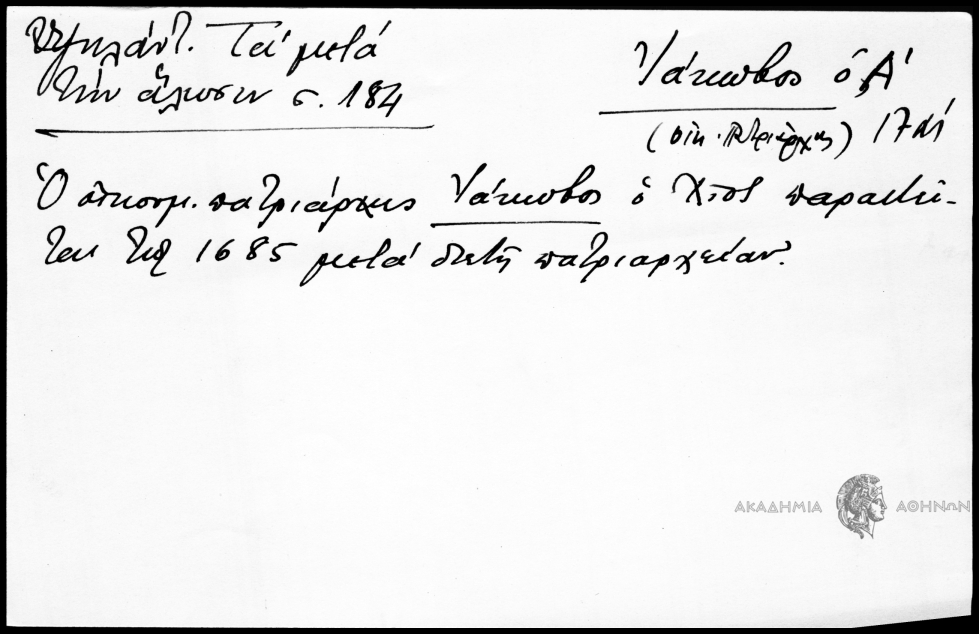 Ὑψηλάντ. Τά μετά
τήν ἅλωσιν σ. 184
Ἰάκωβος ὁ Α'
(οἰκ. Πατριάρχης) 17 αἰ
Ὁ οἰκουμ. πατριάρχης Ἰάκωβος ὁ Χῖος παραιτεῖ-
ται τῷ 1685 μετά διετῆ πατριαρχείαν.
ΑΚΑΔΗΜΙΑ ΑΘΗΝΩΝ